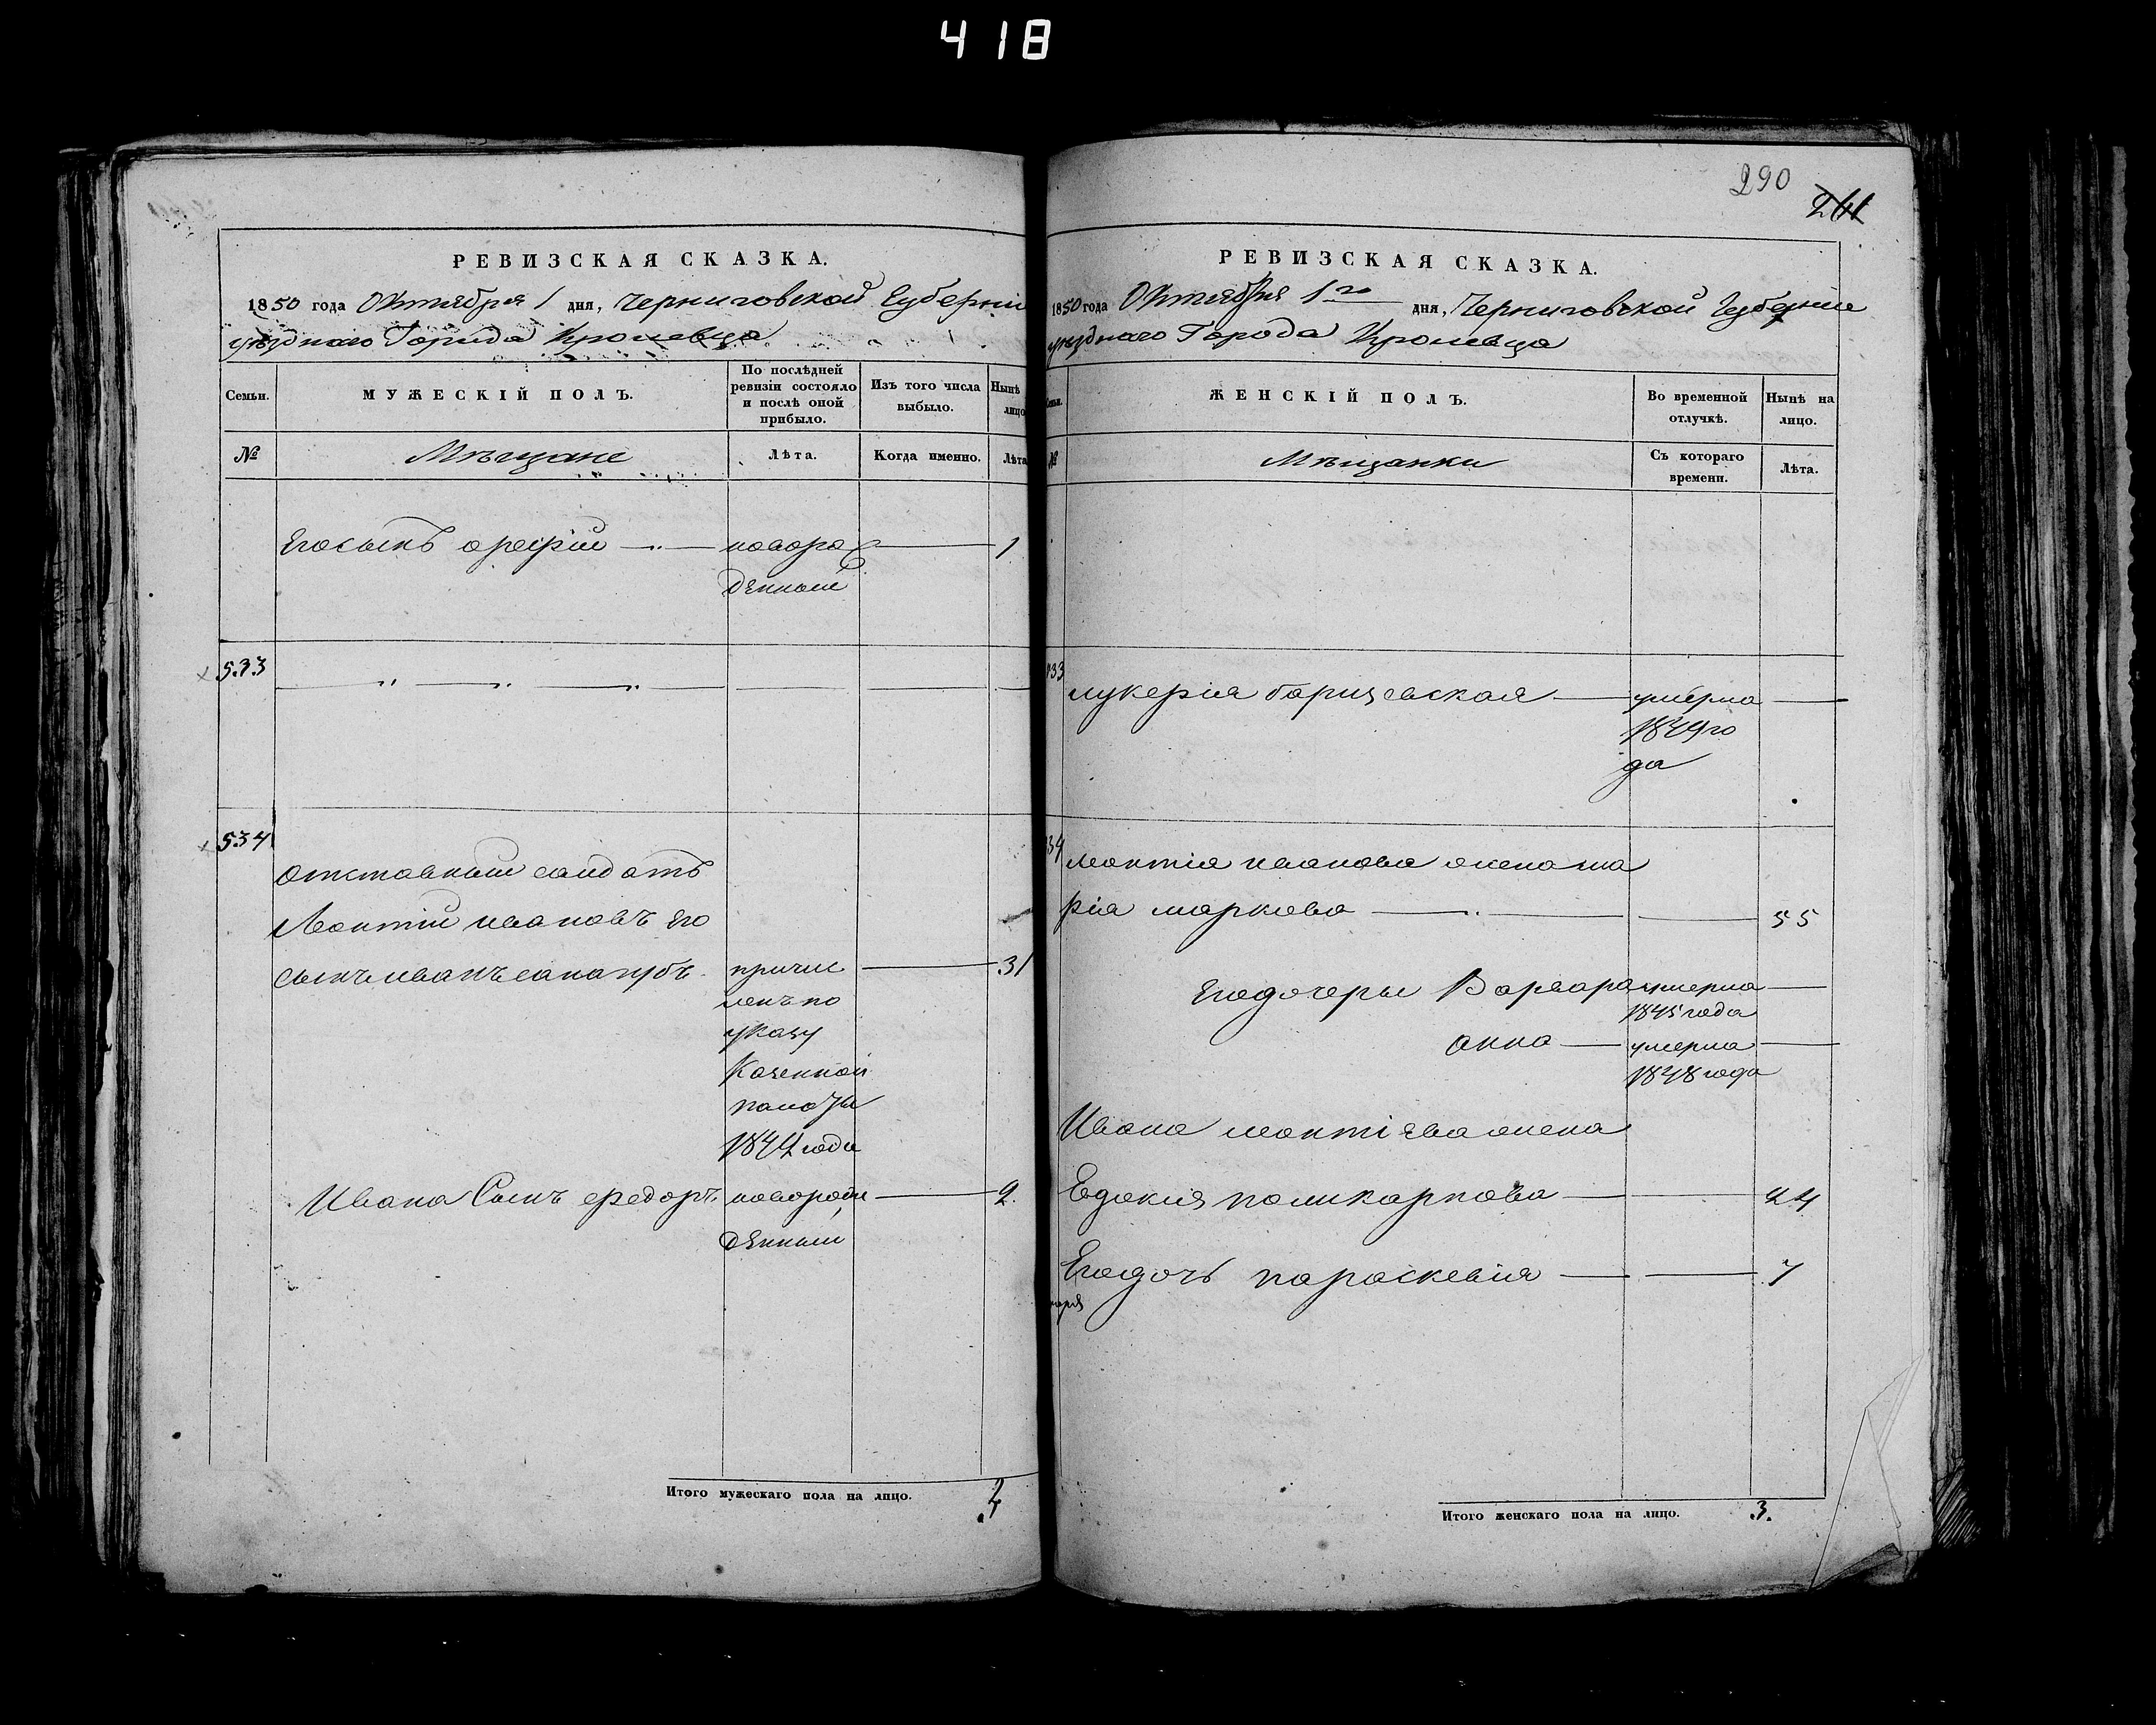 418
РЕВИЗСКАЯ СКАЗКА.
1850 года Октября 1 дня, Черниговской Губерніи
уѣзднаго Города Кролевца
Семьи.
МУЖЕСКІЙ ПОЛЪ.
По послѣдней
ревизіи состояло
и послѣ оной
прибыло.
Изъ того числа
выбыло.
Нынѣ
лицо
№
Мѣщане
Лѣта.
Когда именно.
Лѣта
Его сынъ новорож 1
денный
533
534
отставный салдатъ
Леонтій ивановъ его
сынъ иванъ причис 31
ленъ по
указу
Казенной
палаты
1844 года
Ивана Сынъ федоръ новорож 2.
денный
Итого мужескаго пола на лицо.
290
241
РЕВИЗСКАЯ СКАЗКА.
1850 года Октября 1го дня, Черниговской Губерніи
уѣзднаго Города Кролевца
ЖЕНСКІЙ ПОЛЪ.
Во временной
отлучкѣ.
Нынѣ на
лицо.
№
Мѣщанки
Съ котораго
времени.
Лѣта.
533 лукерія борщевская умерла
1849 го
да
534 леонтія иванова жена ма
рія маркова 55
Его дочеры Варвара умерла
1845 года
анна умерла
1848 года
Ивана леонтіева жена
Евдокия поликарпова 24
Его дочь параскевія 7
Итого женскаго пола на лицо. 3.